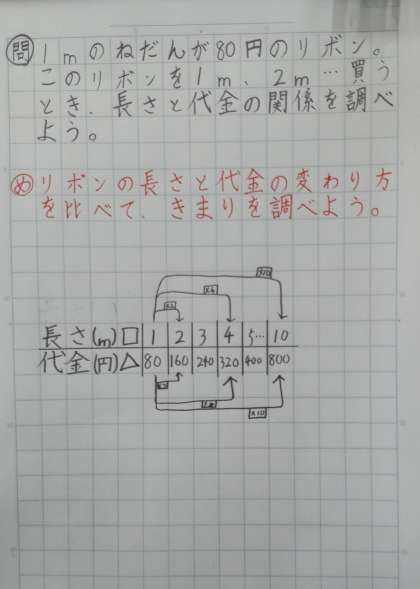 問 1mのねだんが80円のリボン。
このリボンを1m、2m…買う
とき、長さと代金の関係を調べ
よう。
め リボンの長さと代金の変わり方
を比べて、きまりを調べよう。
×10
×4
×2
長さ(m)□ 1 2 3 4 5… 10
代金(円)△ 80 160 240 320 400 800
×2
×4
×10